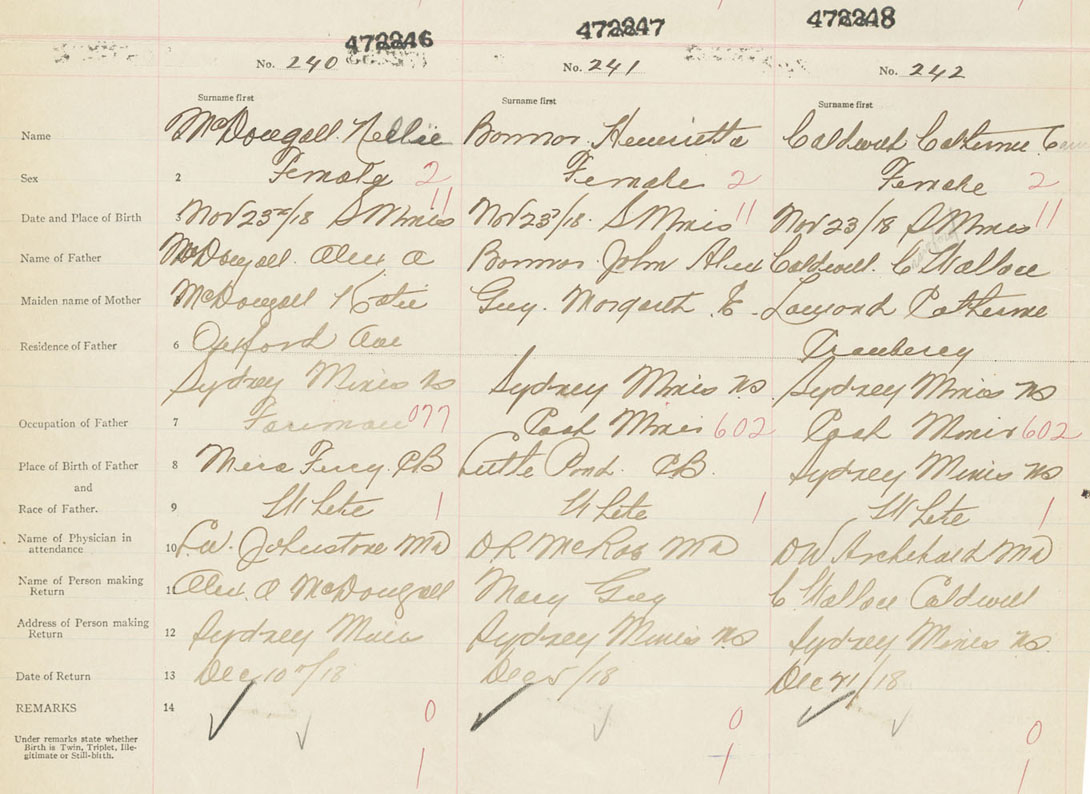 472246 472247 472248
No. 240 No. 241 No. 242
Surname first Surname first Surname first
Name McDougall. Nellie Bonnor. Henrietta Caldwell Catherine
Sex 2 Female 2 Female 2 Female 2
Date and Place of Birth 3 Nov 23rd/18 S Mines 11 Nov 23rd/18. S Mines 11 Nov 23/18 S Mines 11
Name of Father McDougall. Alex A Bonnor. John Alex Caldwell. C Wallace
Maiden name of Mother McDougall Katie Guy. Margaret E. Lamond Catherine
Residence of Father 6 Oxford Ave Cranberry
Sydney Mines NS Sydney Mines NS Sydney Mines NS
Occupation of Father 7 Foreman 077 Coal Miner 602 Coal Miner 602
Place of Birth of Father 8 Mira Ferry. CB Little Pond. CB. Sydney Mines NS
and
Race of Father. 9 White 1 White 1 White 1
Name of Physician in
attendance 10 Johnstone MD D R McRae MD D W Archibald MD
Name of Person making
Return 11 Alex. A McDougall Mary Guy C Wallace Caldwell
Address of Person making
Return 12 Sydney Mines Sydney Mines NS Sydney Mines NS.
Date of Return 13 Dec 10th/18 Dec 5/18 Dec 21/18
REMARKS 14 0 0 0
Under remarks state whether
Birth is Twin, Triplet, Ille-
gitimate or Still-birth. 1 1 1